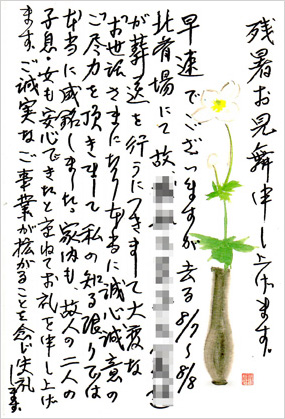 残暑お見舞申し上げます。
早速でございますが去る8/7〜8/8
北斎場にて故
が葬送を行うにつきまして大変な
お世話さまになり本当に誠心誠意の
ご尽力を頂きまして私の知る限りでは
本当に感銘しました。家内も、故人の二人の
子息・女も安心できたと重ねてお礼を申し上げ
ます。ご誠実なご事業が拡がることを念じ失礼
します。